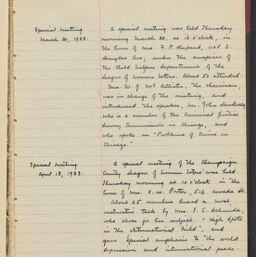 Special Meeting
March 30, 1933.
A special meeting was held Thursday
morning March 30, at 10 o'clock, in
the home of Mrs. F. P. Shepard, 1105 S.
Douglas Ave, under the auspices of
the Child Welfare Department of the
League of Women Voters. About 50 attended.
Mrs. W. G. McAllister, the chairman,
was in charge of the meeting, and
introduced the speaker, Mr. John
who is a member of the Criminal Justice
Survey Commission in Chicago, and
who spoke on "Problems of Crime in
Chicago."
Special Meeting
April 13, 1933.
A special meeting of the Champaign
County League of Women Voters was held
Thursday morning at 10 o'clock in the
home of Mrs. Nevada St.
About 25 members heard a most
instructive talk by Mrs. S. C.
who chose for her subject "High Spots
in the International Field", and
gave special emphasis to "the world
depression and international peace.